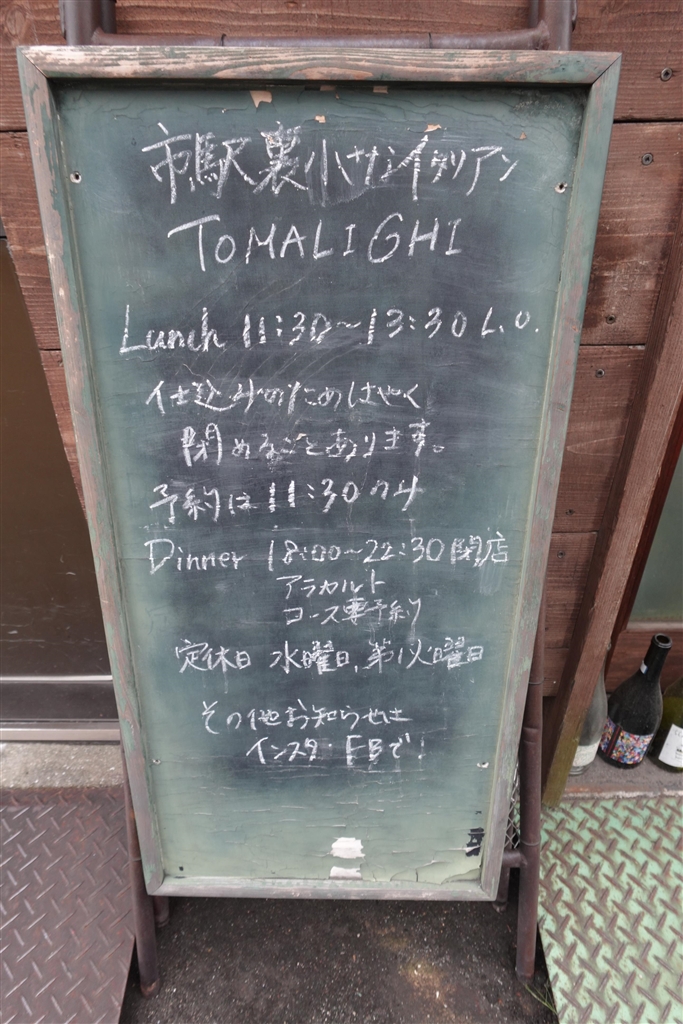 市駅裏小サナイタリアン
TOMALIGHI
Lunch 11:30〜13:30 L.O.
仕込みのためはやく
閉めることあります。
予約は11:30のみ
Dinner 18:00〜22:30閉店
アラカルト
コース要予約
定休日 水曜日、第1火曜日
その他お知らせは
インスタ・FBで!